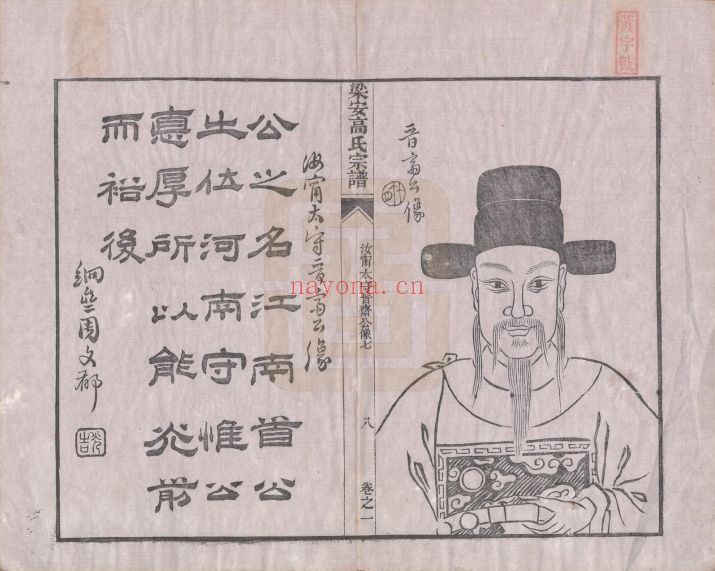 黃字號
晉齋公像
梁安高氏宗譜
汝甯太守晉齋公像七
八
卷之一
汝甯太守晉齋公像
公之名江南首公
之位河南守惟公
悳厚所以能光前
而裕後
周文郁
nayona.cn